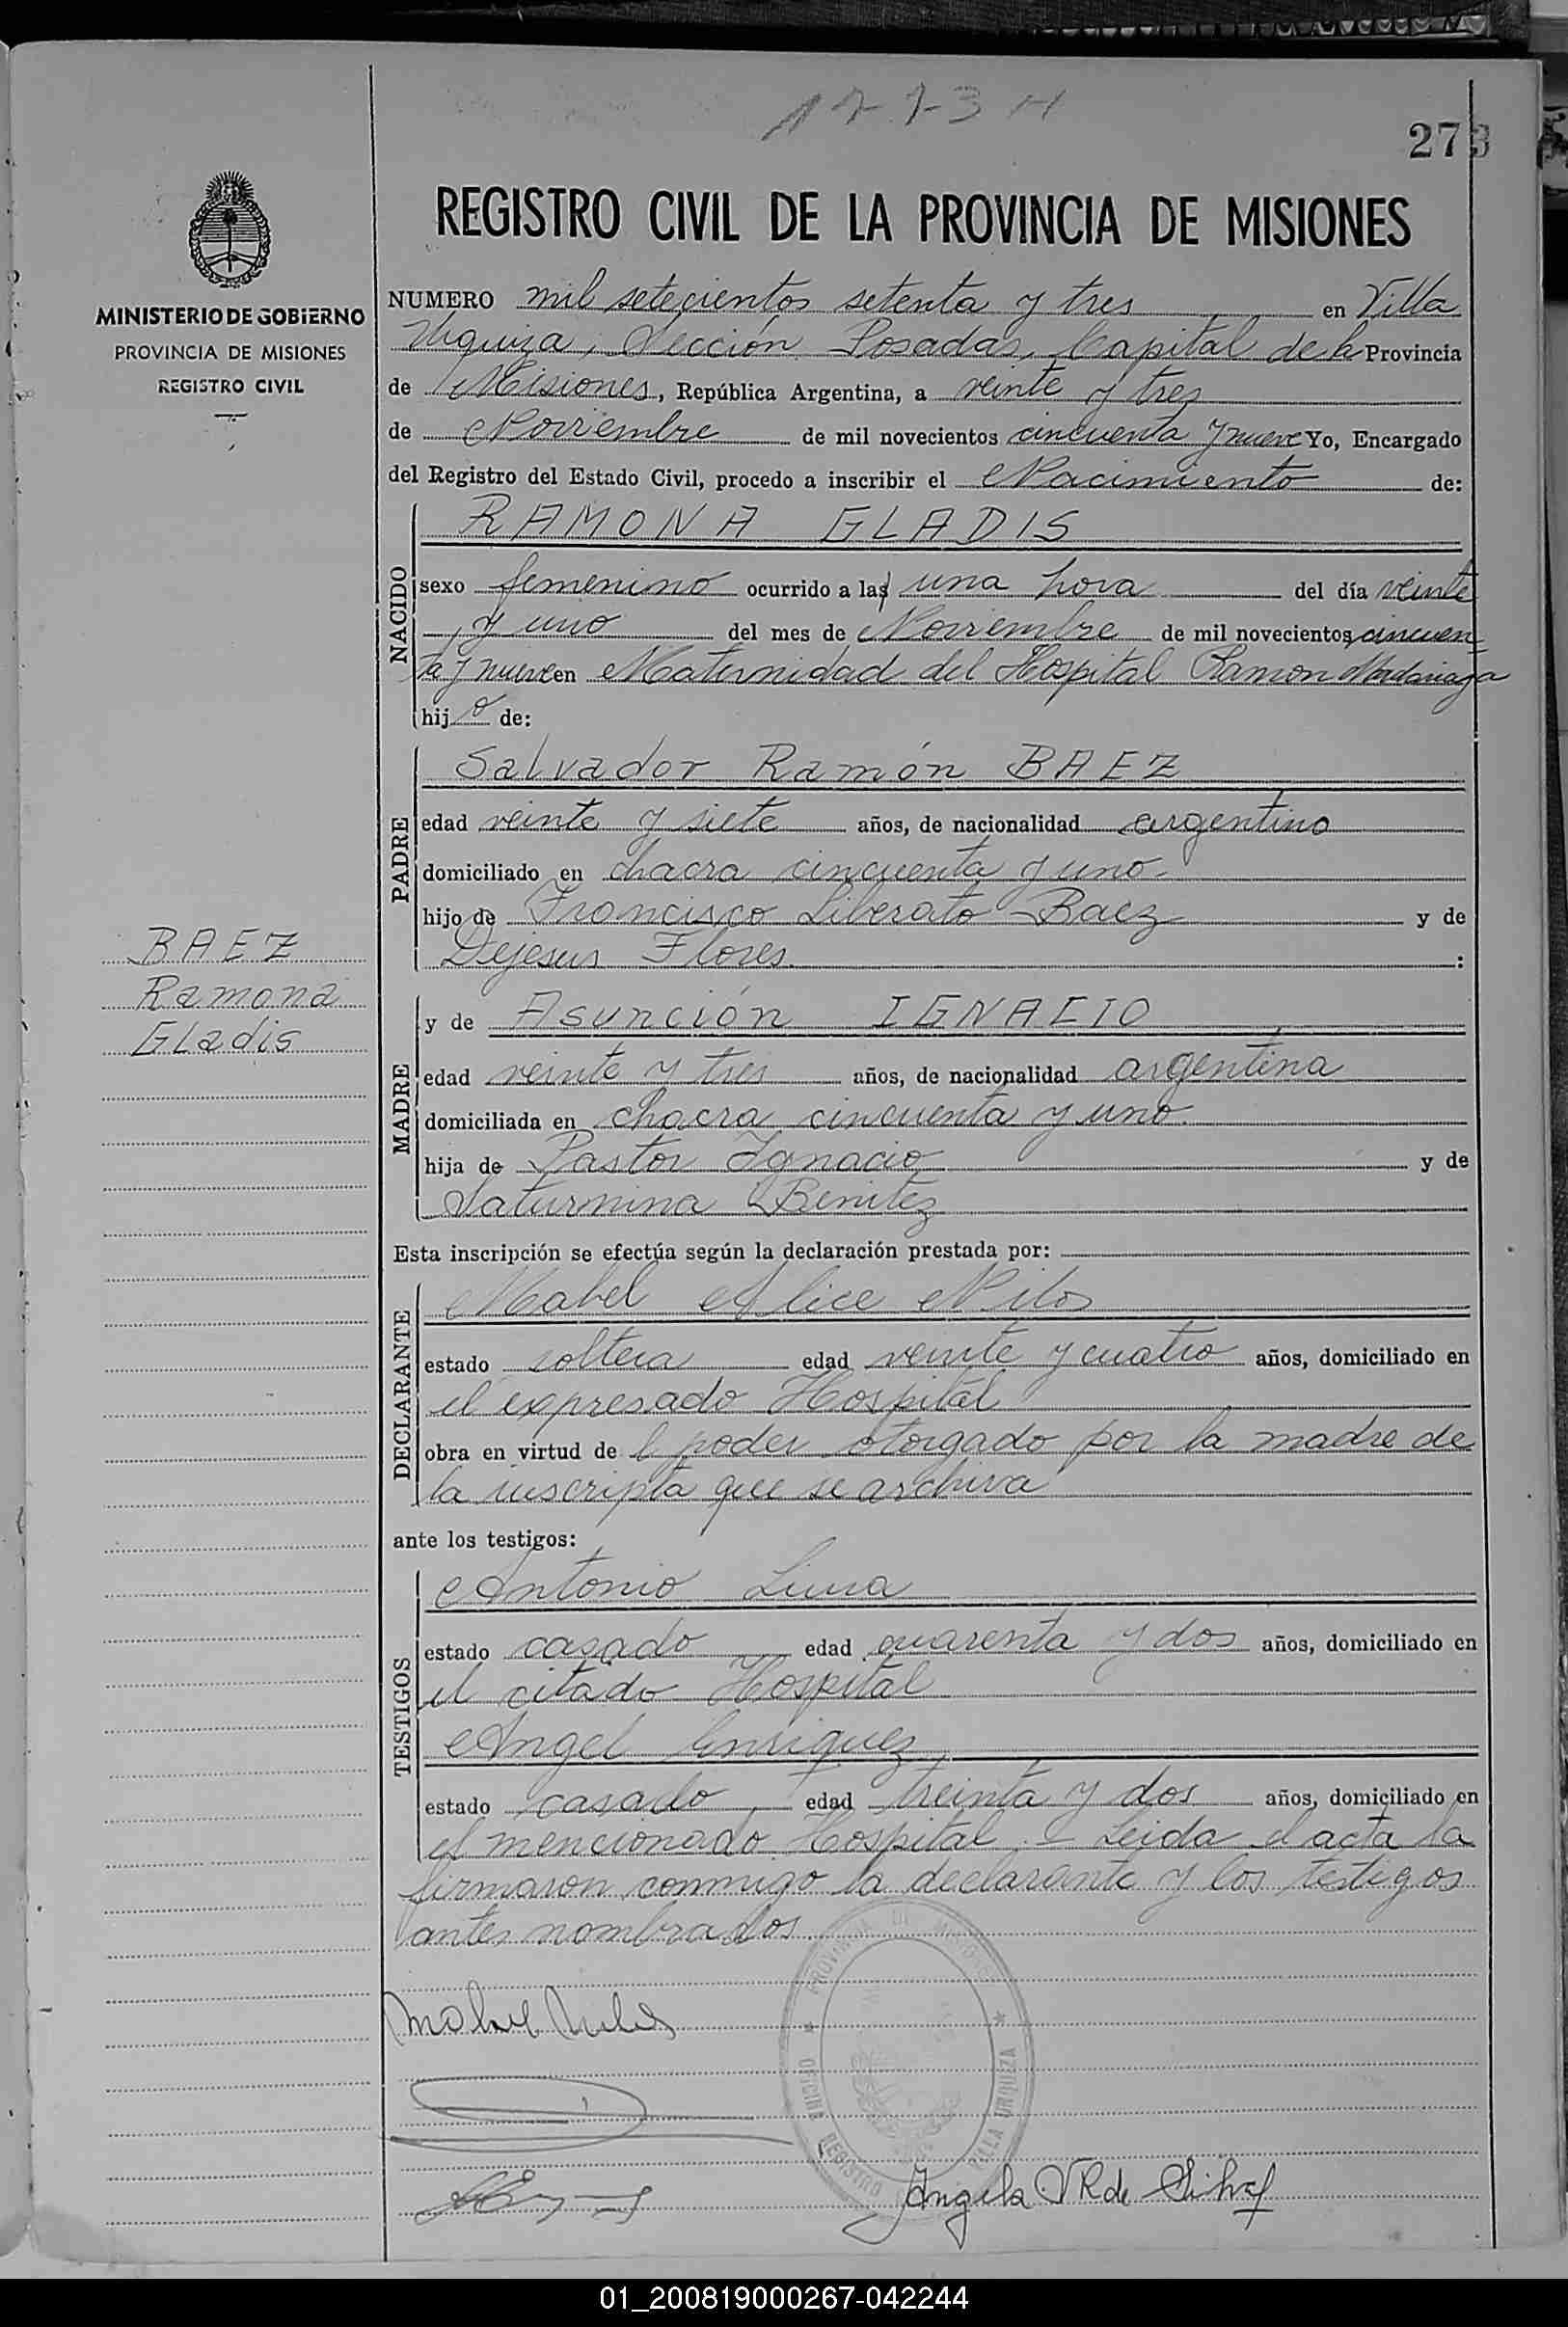 273
REGISTRO CIVIL DE LA PROVINCIA DE MISIONES
MINISTERIO DE GOBIERNO
PROVINCIA DE MISIONES
REGISTRO CIVIL
NUMERO mil setecientos setenta y tres en Villa
Urquiza, Sección Posadas, Capital de la Provincia
de Misiones, República Argentina, a veinte y tres
de Noviembre de mil novecientos cincuenta y nueve Yo, Encargado
del Registro del Estado Civil, procedo a inscribir el Nacimiento de:
NACIDO
RAMONA GLADIS
sexo femenino ocurrido a las una hora del día veinte
y uno del mes de Noviembre de mil novecientos cincuen
ta y nueve en Maternidad del Hospital Ramon Madariaga
hij de:
PADRE
Salvador Ramón BAEZ
edad veinte y siete años, de nacionalidad argentino
domiciliado en chacra cincuenta y uno.
hijo de Francisco Liberato Baez y de
Dejesus Flores :
BAEZ
Ramona
GLadis
MADRE
y de Asunción IGNACIO
edad veinte y tres años, de nacionalidad argentina
domiciliada en chacra cincuenta y uno.
hija de Pastor Ignacio y de
Saturnina Benitez
Esta inscripción se efectúa según la declaración prestada por:
DECLARANTE
Mabel Alice
estado soltera edad veinte y cuatro años, domiciliado en
el expresado Hospital
obra en virtud de l poder otorgado por la madre de
la inscripta que se archiva
ante los testigos:
TESTIGOS
Antonio
estado casado edad cuarenta y dos años, domiciliado en
el citado Hospital
Angel Enriquez
estado casado, edad treinta y dos años, domiciliado en
el mencionado Hospital.- Leida el acta la
firmaron conmigo la declarante y los testigos
antes nombrados.
PROVINCIA DE MISIONES
OFICINA REGISTRO VILLA URQUIZA
Angela V R de Silva
01_200819000267-042244